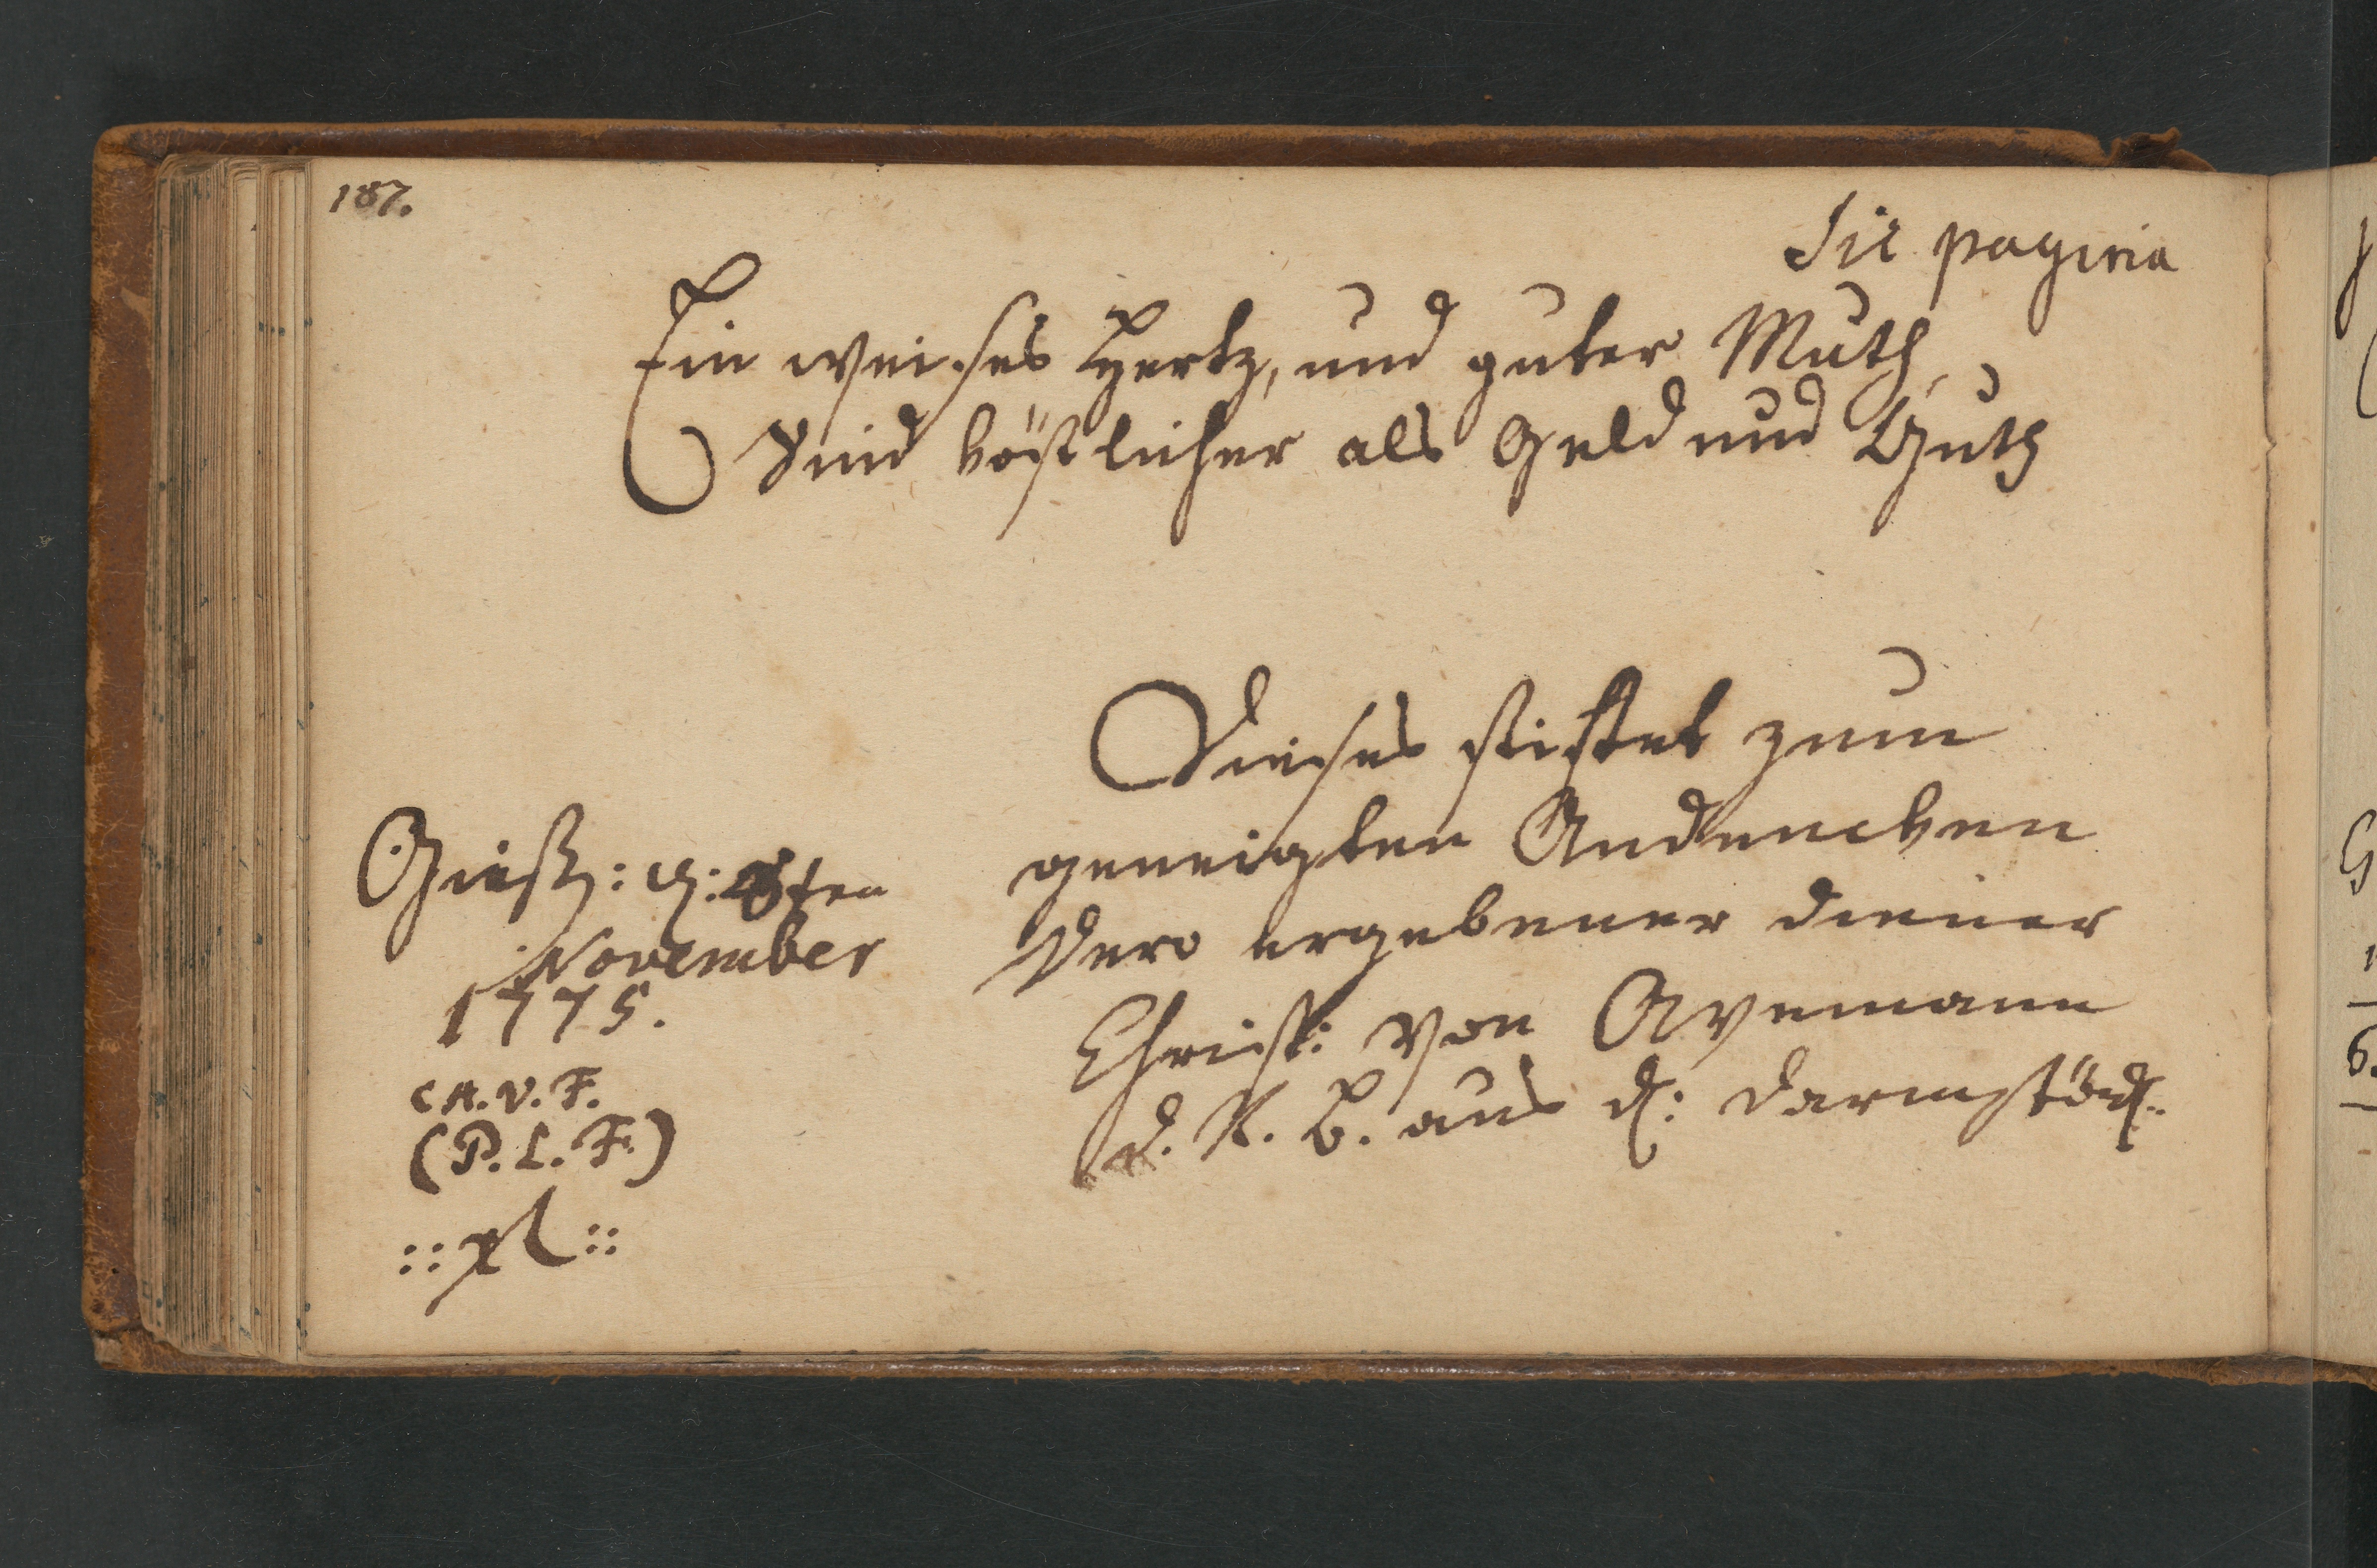 187.
Sic pagina
Ein weises Hertz, und guter Muth,
Sind köstlicher als Geld und Guth
Dieses stiftet zum
geneigten Andencken
Dero ergebener diener
Christ: von Avemann
d. R. B. aus d: Darmstädt:
Gieß: d: 8ten
November
1775.
C.A.V.F.
(P.L.F.)